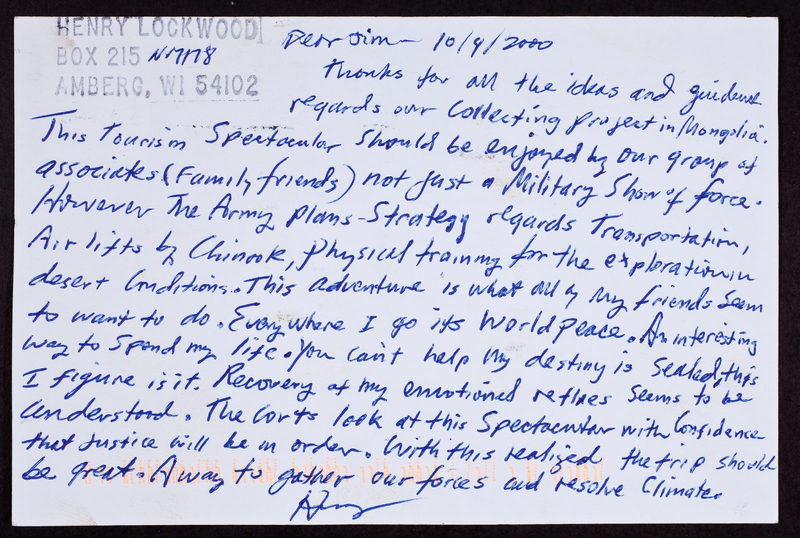 HENRY LOCKWOOD
BOX 215 N17178
AMBERG, WI 54102
Dear Jim - 10/9/2000
Thanks for all the ideas and guidence
regards our Collecting project in Mongolia.
This Tourism Spectacular should be enjoyed by our group of
associates (Family friends) not just a Military Show of force.
However The Army plans-Strategy regards Transportation,
Air lifts by Chinook, physical training for the exploration in
desert Conditions. This adventure is what all of my friends seem
to want to do. Everywhere I go its World peace. An interesting
way to spend my life. You can't help my destiny is sealed, this
I figure is it. Recovery of my emotional reflxes seems to be
understood. The Corts look at this Spectacular with Confidence
that Justice will be in order. With this realized the trip should
be great. A way to gather our forces and resolve Climate.
Henry